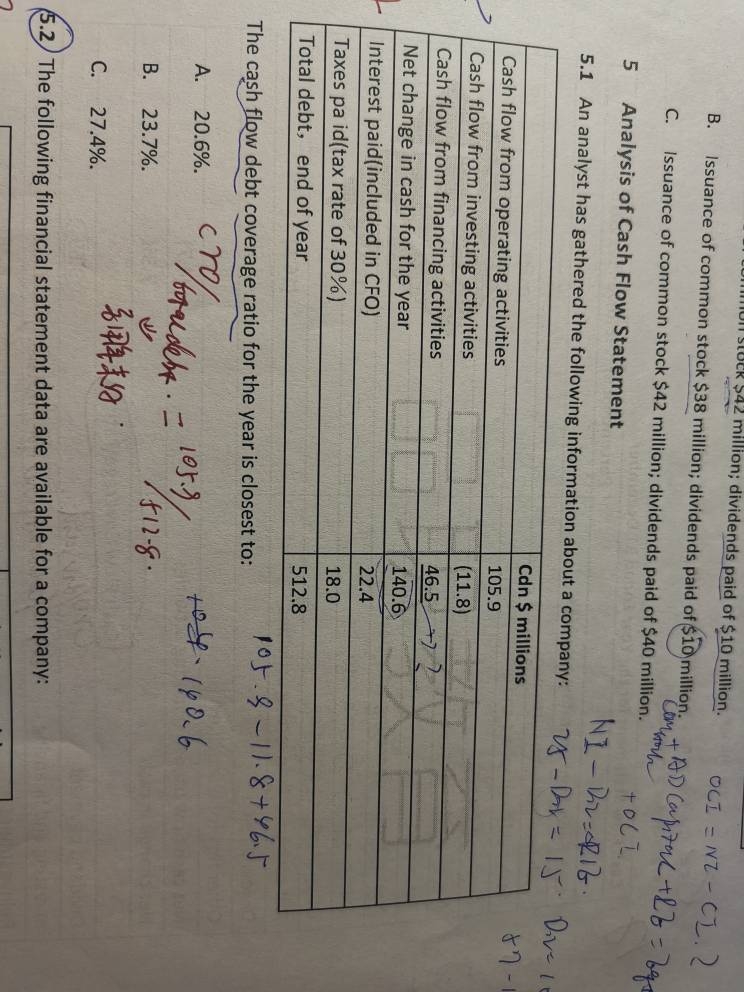 stock $42 million; dividends paid of $10 million.
B. Issuance of common stock $38 million; dividends paid of $10 million.
C. Issuance of common stock $42 million; dividends paid of $40 million.
OCI = NI - CI. ?
5 Analysis of Cash Flow Statement
NI - Div =
+ OCI
5.1 An analyst has gathered the following information about a company:
25 - Div = 15. Div = 10
Cdn $ millions
Cash flow from operating activities 105.9
Cash flow from investing activities (11.8)
Cash flow from financing activities 46.5
Net change in cash for the year 140.6
Interest paid(included in CFO) 22.4
Taxes pa id(tax rate of 30%) 18.0
Total debt, end of year 512.8
The cash flow debt coverage ratio for the year is closest to:
105.9 - 11.8 + 46.5
A. 20.6%.
CFO/ total debt. = 105.9/ 512.8.
140.6
B. 23.7%.
C. 27.4%.
5.2 The following financial statement data are available for a company: